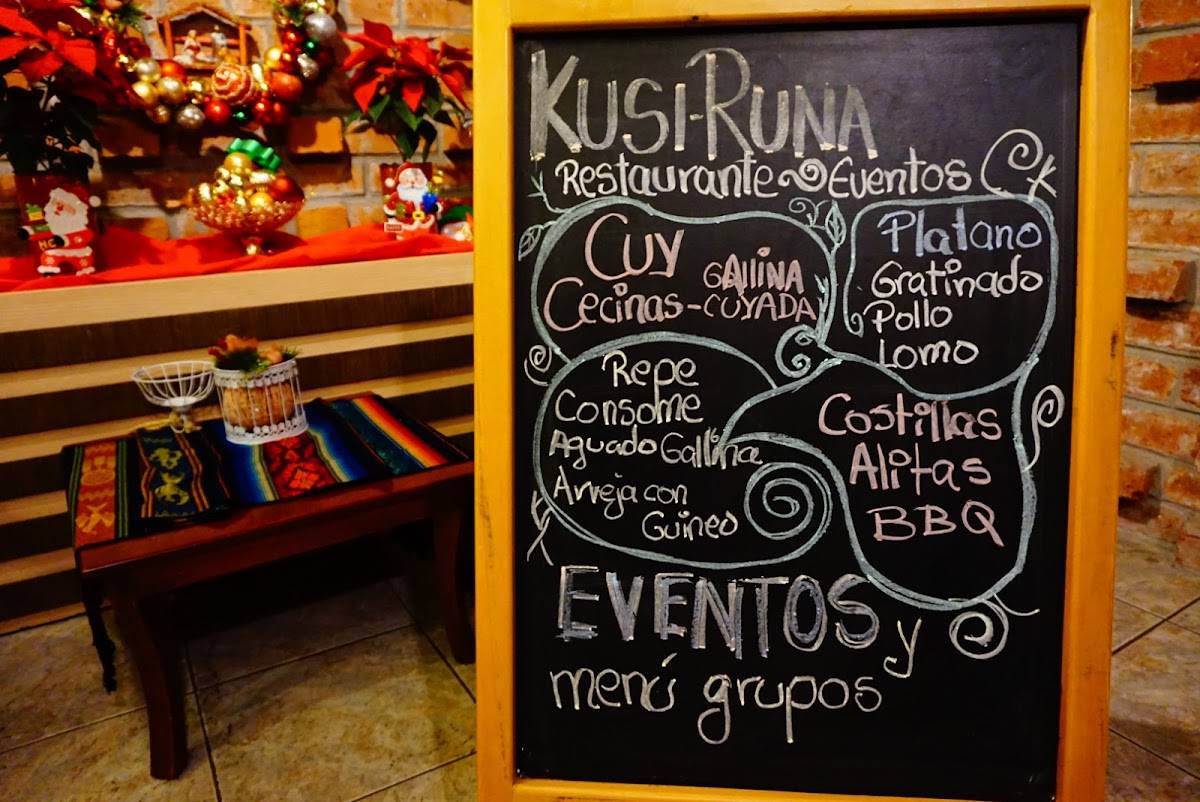 KUSI-RUNA
Restaurante Eventos
Cuy
Cecinas - GAllINA CUYADA
Platano
Gratinado
Pollo
Lomo
Repe
Consome
Aguado Gallina
Arveja con
Guineo
Costillas
Alitas
BBQ
EVENTOS y
menú grupos